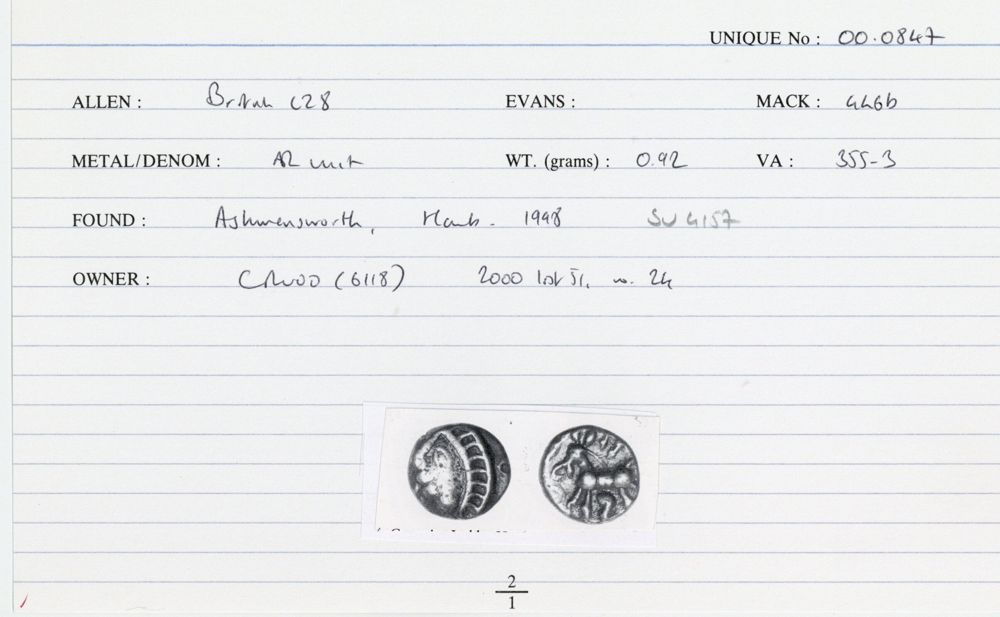 UNIQUE No : 00.0847
ALLEN : British L28 EVANS : MACK : 446b
METAL/DENOM : AR unit WT. (grams) : 0.92 VA : 355-3
FOUND : Ashmensworth, Hants. 1998 SU 4157
OWNER : CRUDD (6118) 2000 list 51, no. 24
2
1